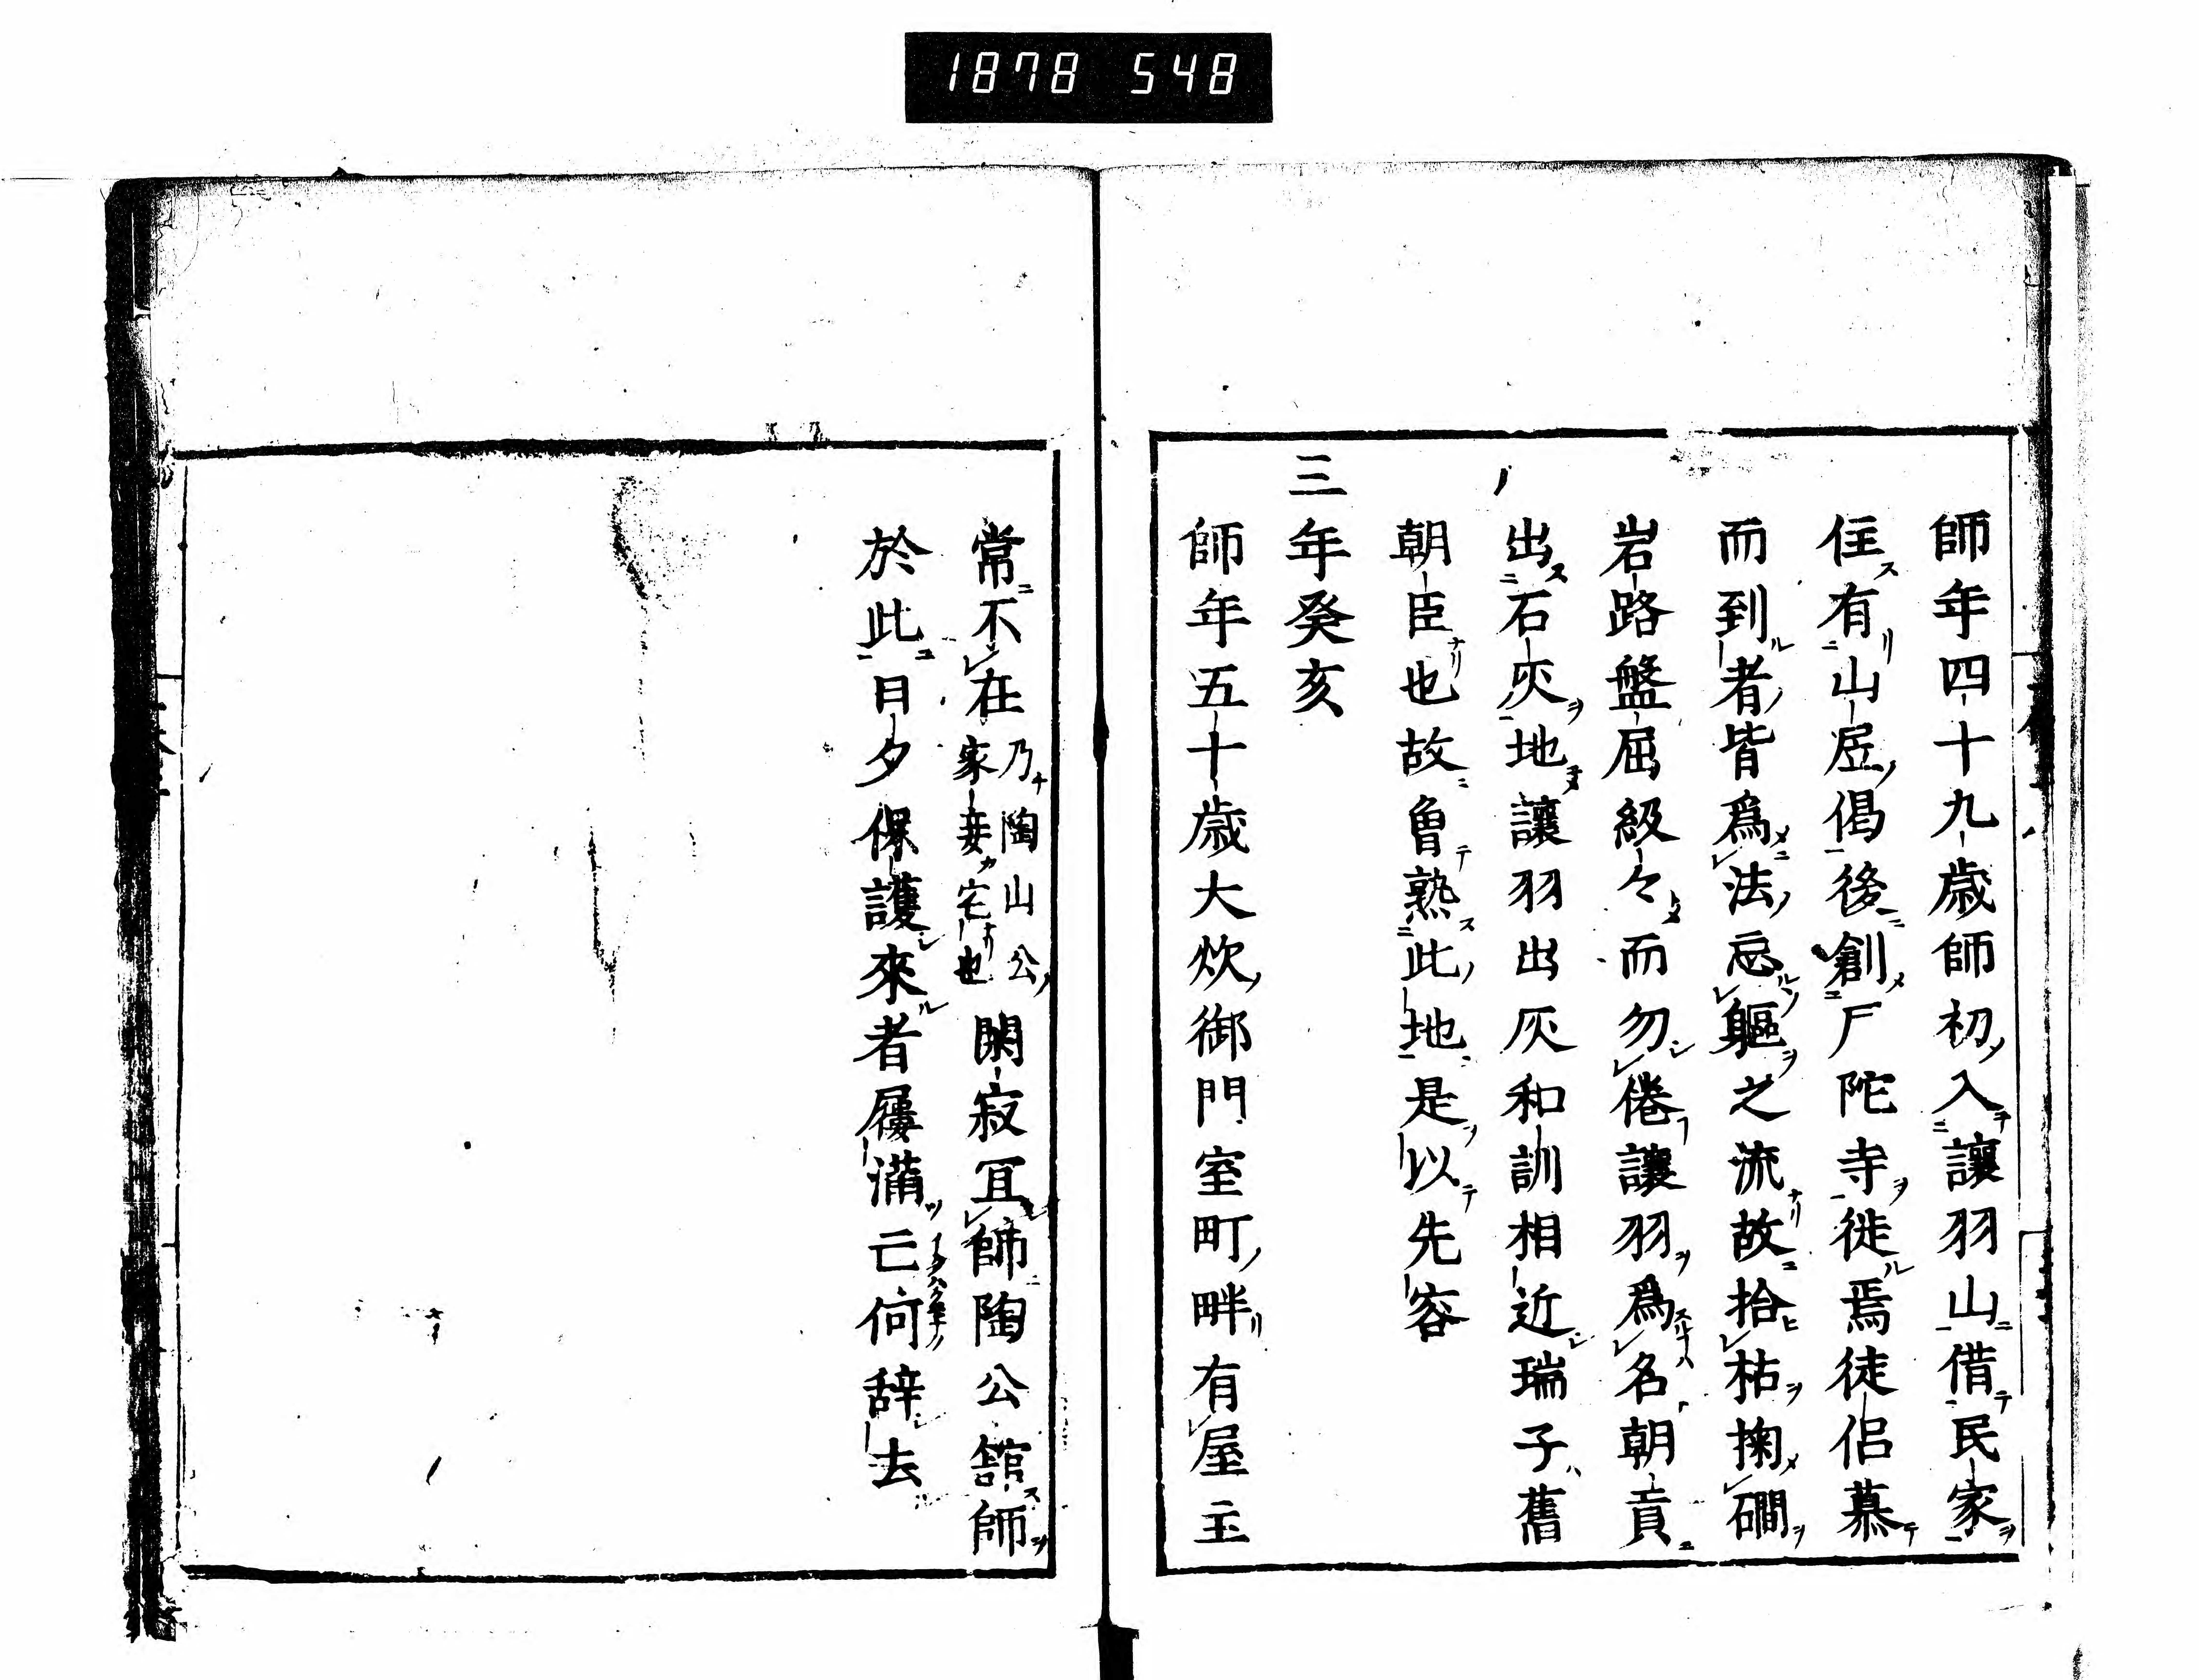 1878 548
師年四十九歳師初入讓羽山借民家
住有山居偈後創尸陀寺徙焉徒侶慕
而到者皆爲法忘軀之流故拾枯掬磵
岩路盤屈級々而勿倦讓羽爲名朝貢
出石灰地讓羽出灰和訓相近瑞子舊
朝臣也故曽熟此地是以先容
三年癸亥
師年五十歳大炊御門室町畔有屋主
常不在乃陶山公家妾宅也閑寂冝師陶公舘師
於此日夕保護來者屨滿亡何辞去